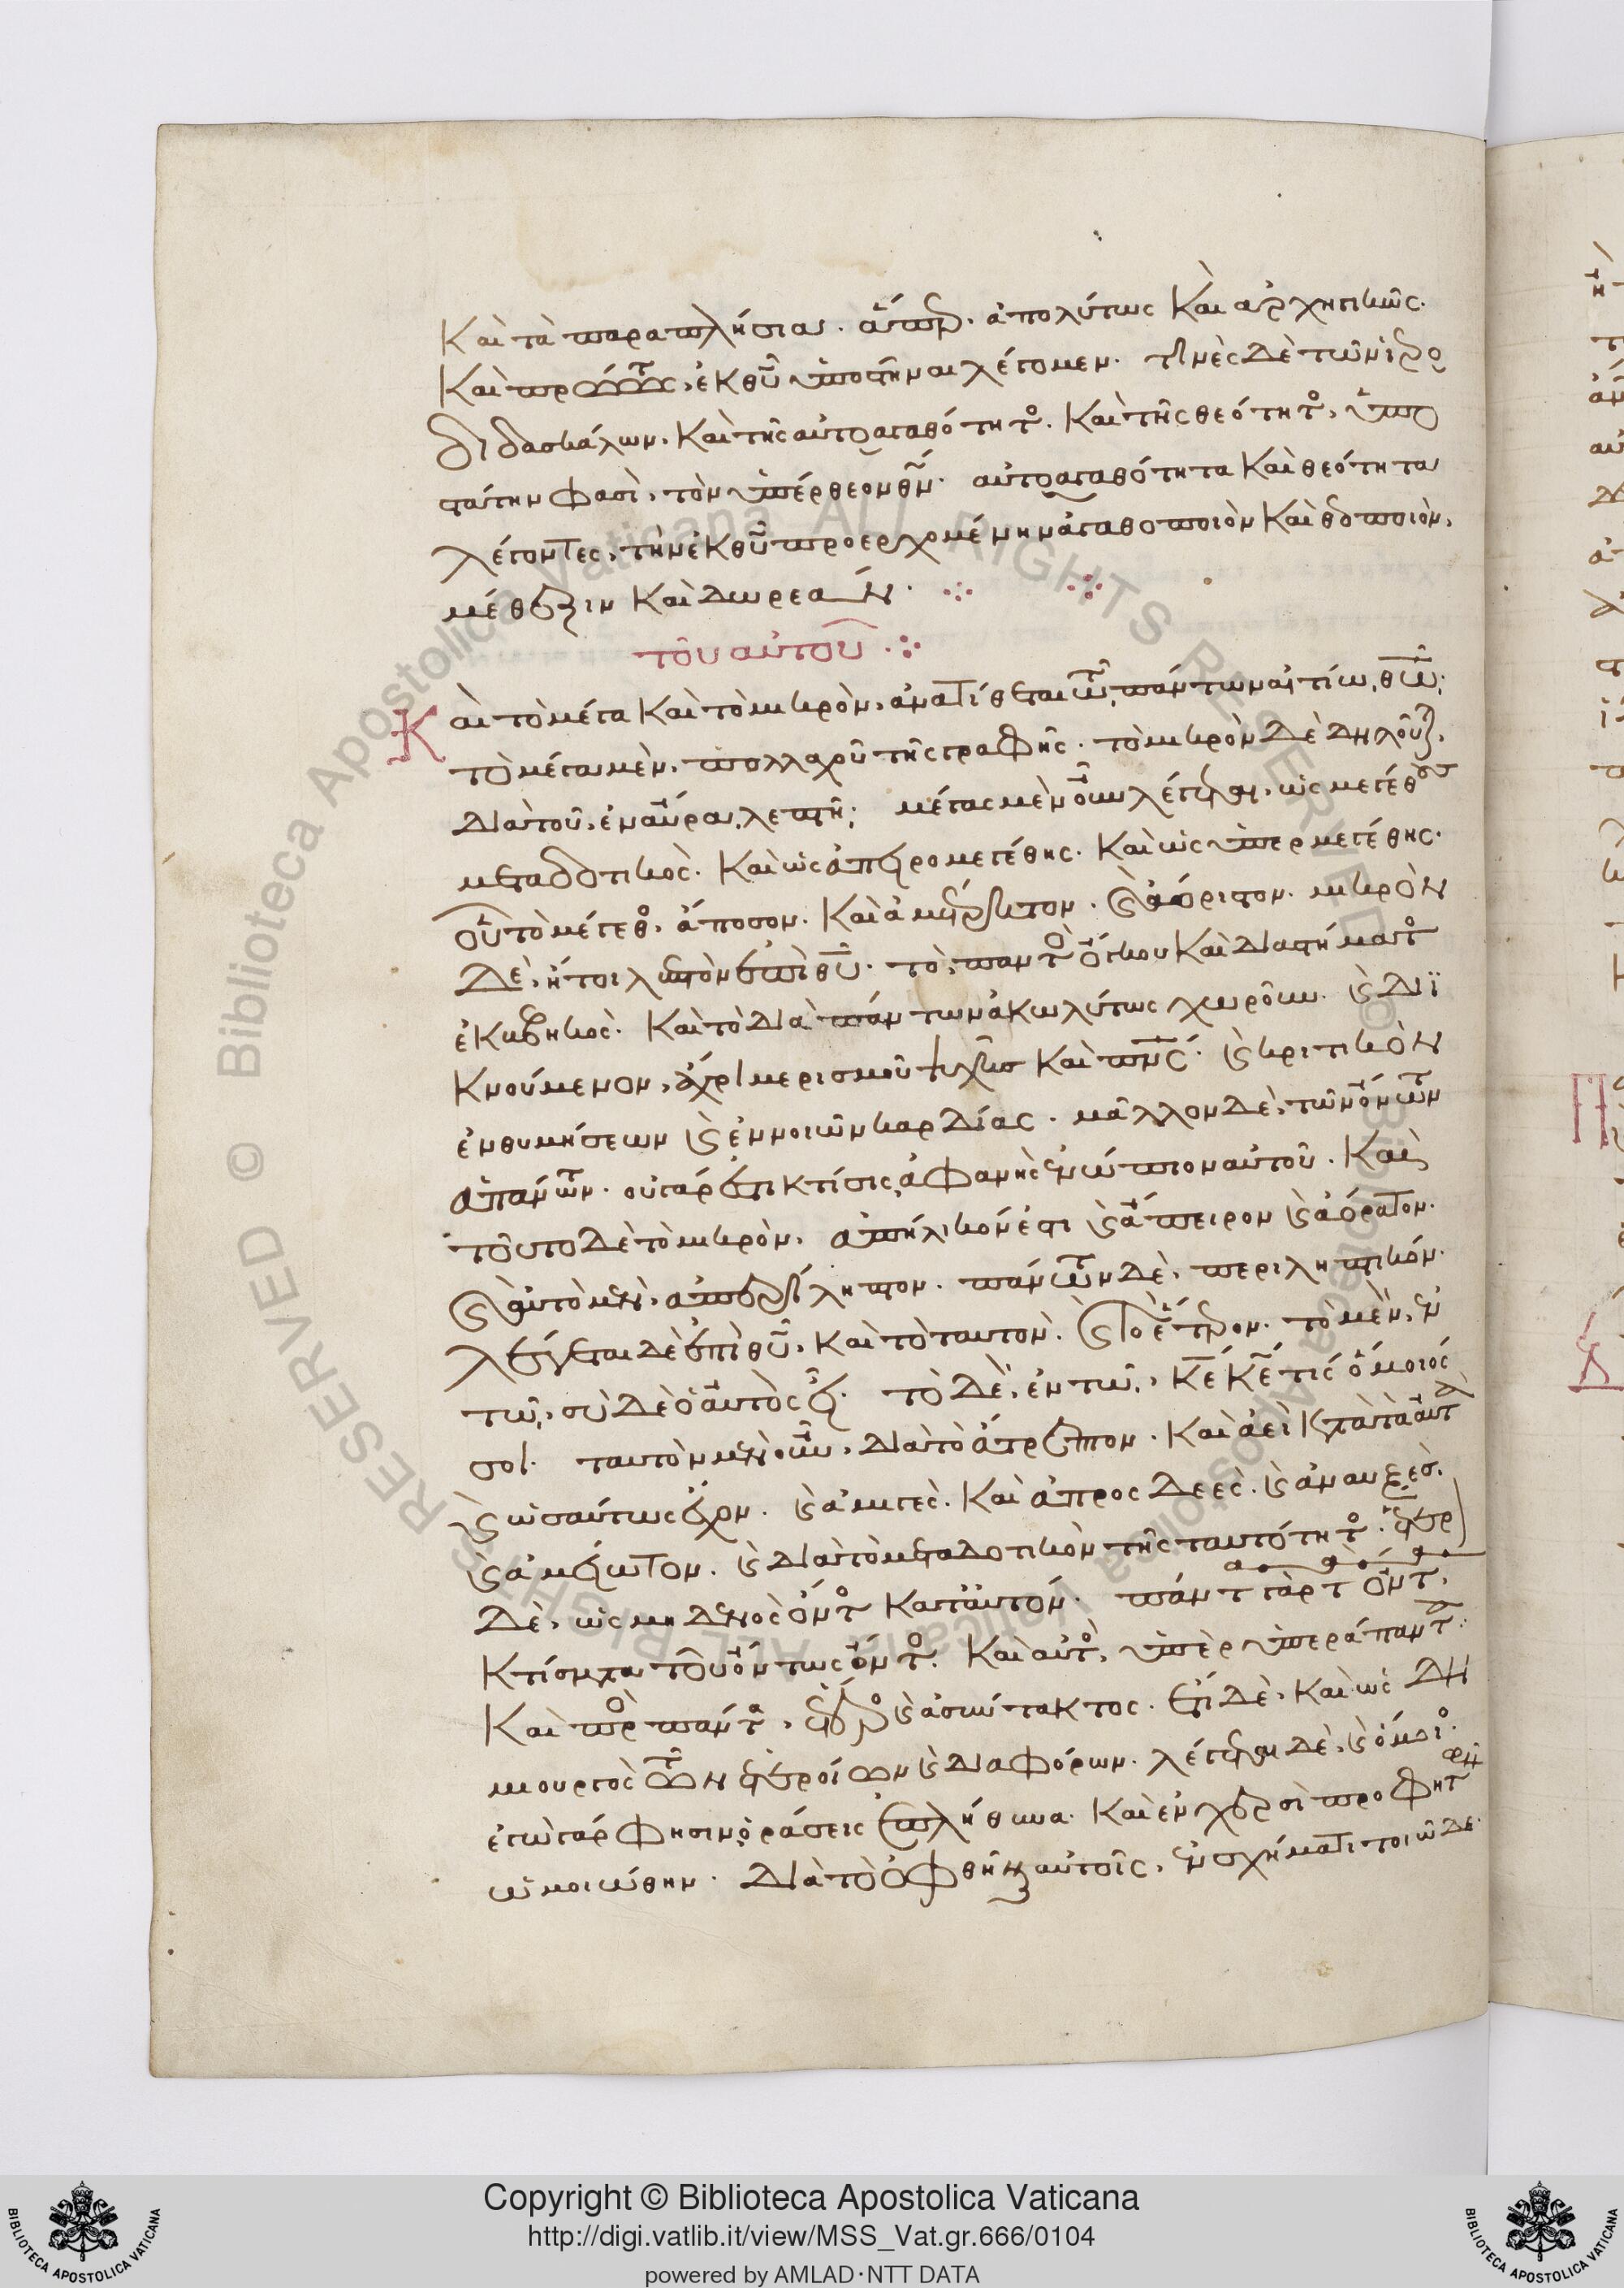 Καὶ τὰ παραπλήσια. ἅπερ. ἀπολύτως καὶ ἀρχητικῶς.
Καὶ πρώτως, ἐκ θῦ ὑποστῆναι λέγομεν. τινὲς δὲ τῶν ἱερο
διδασκάλων. καὶ τῆς αὐτοαγαθότητος. καὶ τῆς θεότητος, ὑπο
στάτην φασὶ, τὸν ὑπέρθεον θν. αὐτοαγαθότητα καὶ θεότητα
λέγοντες, τὴν ἐκ θῦ προερχομένην ἀγαθοποιὸν καὶ θεοποιὸν,
μέθεξιν καὶ δωρεάν.
τοῦ αὐτοῦ
Καὶ τὸ μέγα καὶ τὸ μικρὸν, ἀνατίθεται τῶ πάντων αἰτίω θῶ.
τὸ μέγα μὲν, πολλαχοῦ τῆς γραφῆς. τὸ μικρὸν δὲ δηλοῦται,
διὰ τοῦ, ἐν αὔρα λεπτῆ. μέγας μὲν οὖν λέγεται, ὡς μεγέθους
μεταδοτικὸς. καὶ ὡς ἀπειρομεγέθης. καὶ ὡς ὑπερμεγέθης.
οὗ τὸ μέγεθος, ἄποσον. καὶ ἀμέτρητον. καὶ ἀόριστον. μικρὸν
δὲ, ἤτοι λεπτὸν ἐπὶ θῦ. τὸ, παντὸς ὄγκου καὶ διαστήματος
ἐκβηκὸς. καὶ τὸ διὰ πάντων ἀκωλύτως χωροῦν. καὶ διϊ
κνούμενον, ἄχρι μερισμοῦ ψυχῆς καὶ πνς. καὶ κριτικὸν
ἐνθυμήσεων καὶ ἐννοιῶν καρδίας. μᾶλλον δὲ, τῶν ὄντων
ἁπάντων. οὐ γάρ ἐστι κτίσις ἀφανὴς ἐνώπιον αὐτοῦ. Καὶ
τοῦτο δὲ τὸ μικρὸν, ἀπήλικόν ἐστι καὶ ἄπειρον καὶ ἀόρατον.
καὶ αὐτὸ μὲν, ἀπερίληπτον. πάντων δὲ, περιληπτικόν.
λέγεται δὲ ἐπὶ θῦ, καὶ τὸ ταυτον. καὶ τὸ ἕτερον. τὸ μὲν, ἐν
τῶ, σὺ δὲ ὁ αὐτὸς εἶ. τὸ δὲ, ἐν τῶ, κε κε τίς ὅμοιός
σοι. ταυτὸν μὲν οὖν, διὰ τὸ ἄτρεπτον. καὶ ἀεὶ κατὰ τὰ αὐτὰ
καὶ ὡσαύτως ἔχον. καὶ ἀμιγὲς. καὶ ἀπροσδεὲς. καὶ ἀναυξές.
καὶ ἀμείωτον. καὶ διὰ τὸ μεταδοτικὸν τῆς ταυτότητος. ἕτερον
δὲ, ὡς μηδενὸς ὄντος κατ' αὐτόν. πάντα γὰρ τὰ ὄντα,
κτίσματα τοῦ ὄντως ὄντος. καὶ αὐτὸς, ὑπὲρ ὑπεράπαντα.
Καὶ πρὸς πάντα, ἕτερος καὶ ἀσύντακτος. ἔτι δὲ, καὶ ὡς δη
μιουργὸς τῶν ἑτεροίων καὶ διαφόρων. λέγεται δὲ, καὶ ὅμοιος.
ἐγὼ γάρ φησιν ὁράσεις ἐπλήθυνα. καὶ ἐν χερσὶ προφητῶν
ὡμοιώθην. διὰ τὸ ὀφθῆναι αὐτοῖς, ἐν σχήματι τοιῶδε.
Copyright © Biblioteca Apostolica Vaticana
http://digi.vatlib.it/view/MSS_Vat.gr.666/0104
powered by AMLAD·NTT DATA